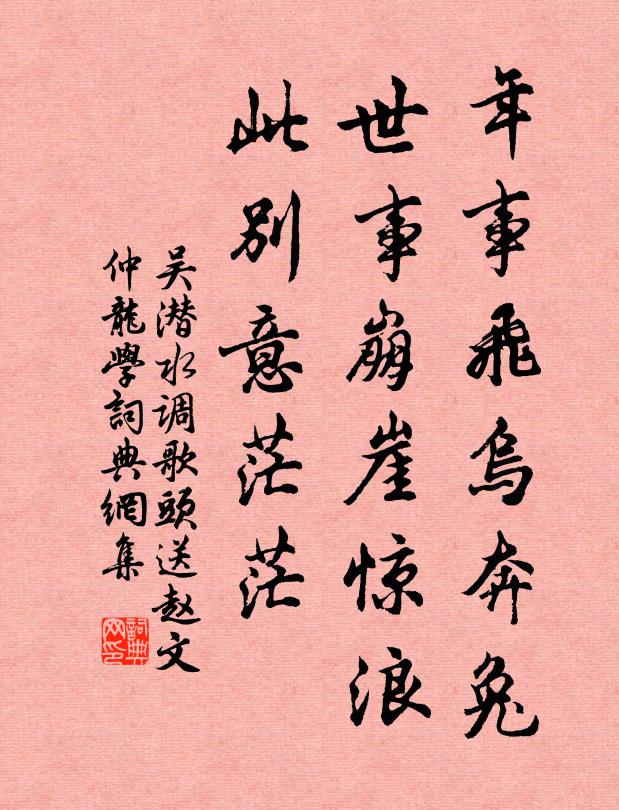 年事飛烏奔兔
世事崩崖惊浪
此別意茫茫
吴潜水调歌頭送赵文
仲龍學詞典網集
詞典
网印